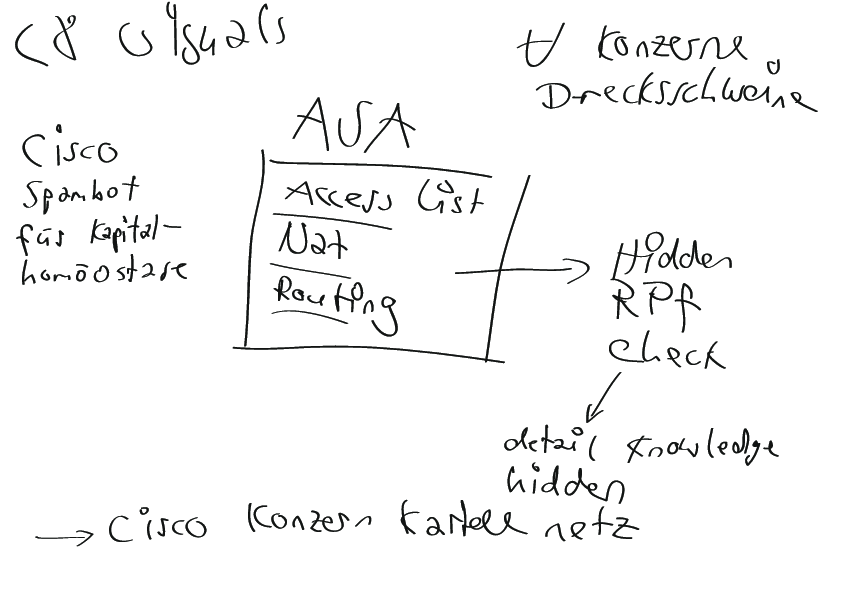 ∀ Konzerne
Drecksschweine
Cisco
Spambot
für Kapital-
homöostase
ASA
Access List
Nat
Routing
Hidden
RPf
check
detail knowledge
hidden
→ Cisco Konzern Kartell netz